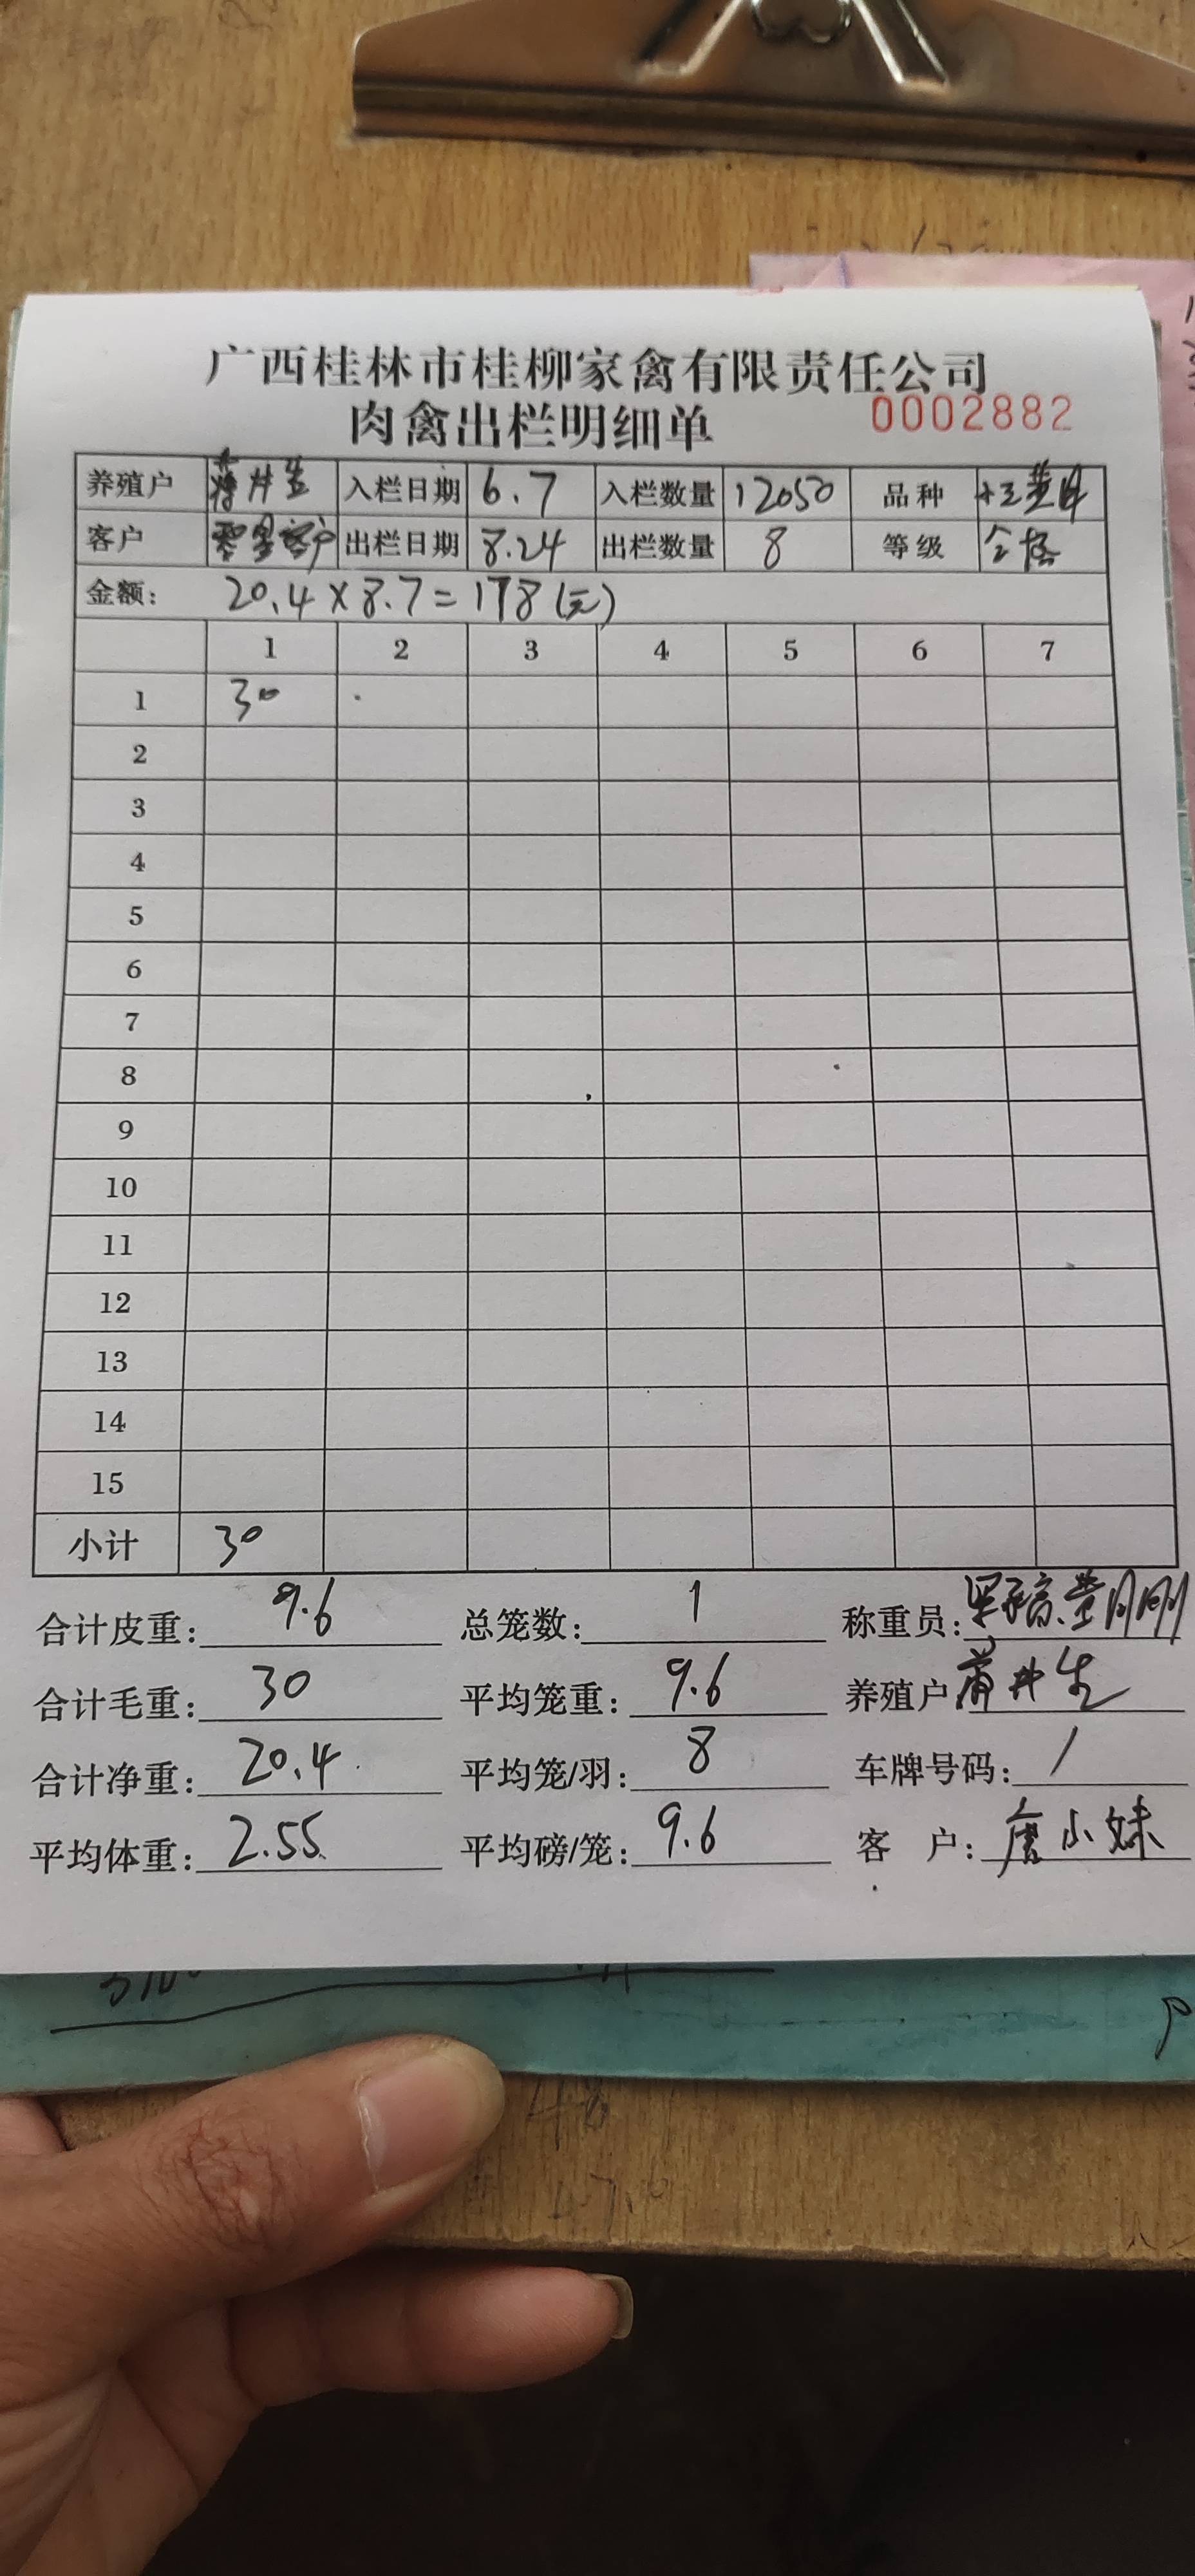 广西桂林市桂柳家禽有限责任公司
肉禽出栏明细单 0002882
养殖户 蒋井生 入栏日期 6.7 入栏数量 12050 品种
客户 零星客户 出栏日期 8.24 出栏数量 8 等级 合格
金额: 20.4×8.7=178(元)
1 2 3 4 5 6 7
1 30
2
3
4
5
6
7
8
9
10
11
12
13
14
15
小计 30
合计皮重: 9.6 总笼数: 1 称重员:
合计毛重: 30 平均笼重: 9.6 养殖户 蒋井生
合计净重: 20.4 平均笼/羽: 8 车牌号码: /
平均体重: 2.55 平均磅/笼: 9.6 客 户: 唐小妹